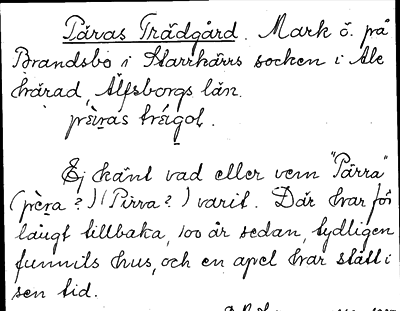 Päras Trädgård. Mark ö. på
Brandsbo i Starrkärrs socken i Ale
härad, Älfsborgs län.
Ej känt vad eller vem "Pärra"
(pèra?) (Pirra?) varit. Där har för
långt tillbaka, 100 år sedan, tydligen
funnits hus, och en apel har stått i
sen tid.